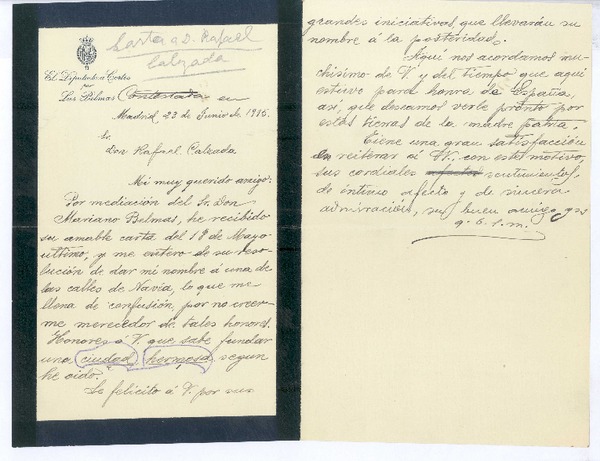 Carta a D. Rafael
Calzada
El Diputado a Cortes
por
Las Palmas
Contestada en
Madrid 23 de Junio de 1915.
Sr.
don Rafael Calzada.
Mi muy querido amigo:
Por mediación del Sr. Don
Mariano Belmas, he recibido
su amable carta del 18 de Mayo
ultimo, y me entero de su reso-
lución de dar mi nombre á una de
las calles de Navia, lo que me
llena de confusión, por no creer-
me merecedor de tales honores.
Honores á V. que sabe fundar
una ciudad hermosa, segun
he oido.
Le felicito á V. por sus
grandes iniciativas, que llevarán su
nombre á la posteridad.
Aquí nos acordamos mu-
chisimo de V. y del tiempo que aquí
estuvo para honra de España,
así, que deseamos verle pronto por
estas tierras de la madre patria.
Tiene una gran satisfacción
en reiterar á V. con este motivo,
sus cordiales afectos sentimientos,
de íntimo afecto y de sincera
admiración, su buen amigo
q. b. s. m.